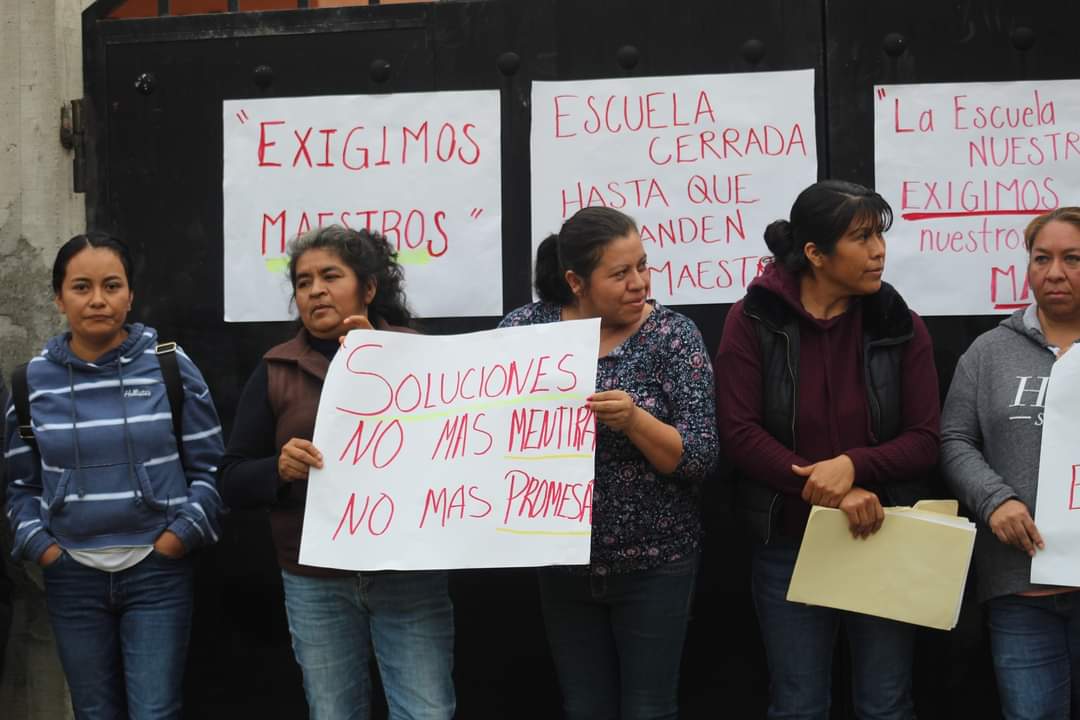 "EXIGIMOS
MAESTROS"
ESCUELA
CERRADA
HASTA QUE
ANDEN
MAEST
"La Escuela
NUESTR
EXIGIMOS
nuestro
MA
SOLUCIONES
NO MAS MENTIRA
NO MAS PROMESA
Hollister
H
E